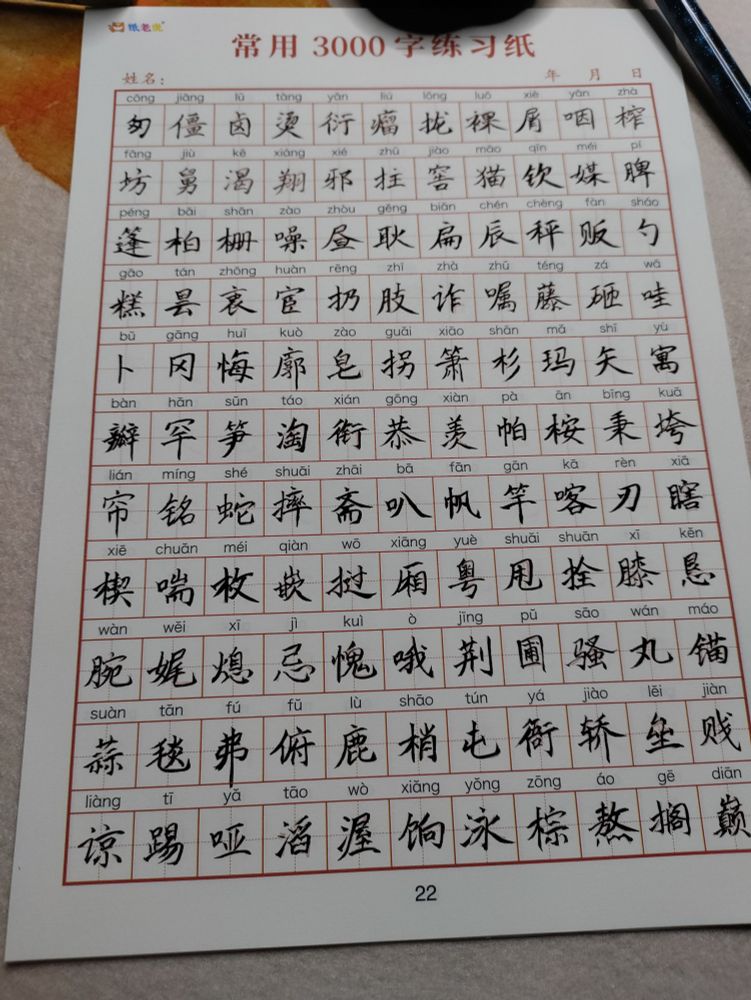 纸老虎
常用3000字练习纸
姓名: 年 月 日
cōng jiāng lǔ tàng yǎn liú lǒng luǒ xiè yān zhà
匆 僵 卤 烫 衍 瘤 拢 裸 屑 咽 榨
fāng jiù kě xiáng xié zhǔ jiào māo qīn méi pí
坊 舅 渴 翔 邪 拄 窖 猫 钦 媒 脾
péng bǎi shān zào zhòu gěng biǎn chén chèng fàn sháo
蓬 柏 栅 噪 昼 耿 扁 辰 秤 贩 勺
gāo tán zhōng huàn rēng zhī zhà zhǔ téng zá wā
糕 昙 衷 宦 扔 肢 诈 嘱 藤 砸 哇
bǔ gāng huǐ kuò zào guǎi xiāo shān mǎ shǐ yù
卜 冈 悔 廓 皂 拐 箫 杉 玛 矢 寓
bàn hǎn sǔn táo xián gōng xiàn pà ān bǐng kuǎ
瓣 罕 笋 淘 衔 恭 羡 帕 桉 秉 垮
lián míng shé shuāi zhāi bā fān gān kā rèn xiā
帘 铭 蛇 摔 斋 叭 帆 竿 喀 刃 瞎
xiē chuǎn méi qiàn wō xiāng yuè shuǎi shuān xī kěn
楔 喘 枚 嵌 挝 厢 粤 甩 拴 膝 恳
wàn wěi xī jì kuì ò jīng pǔ sāo wán máo
腕 娓 熄 忌 愧 哦 荆 圃 骚 丸 锚
suàn tǎn fú fǔ lù shāo tún yá jiào lěi jiàn
蒜 毯 弗 俯 鹿 梢 屯 衙 轿 垒 贱
liàng tī yǎ tāo wò xiǎng yǒng zōng áo gē diān
谅 踢 哑 滔 渥 饷 泳 棕 熬 搁 巅
22